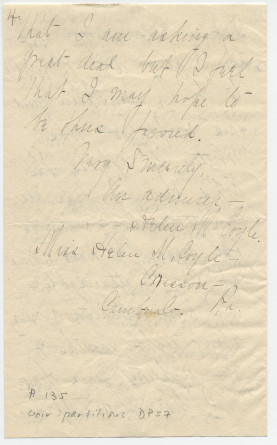 4.
that I am asking a
great deal but I feel
that I may hope to
be thus favored.
Very Sincerely,
An admirer —
Helen M. Coyle.
Miss Helen M. Coyle
Cresson —
Cambria Co. Pa.
# 135
voir partitions, DP57